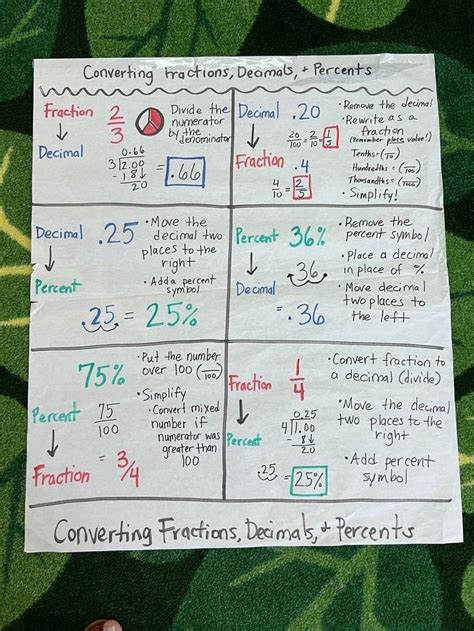 Converting Fractions, Decimals, + Percents
Fraction
↓
Decimal
2/3
Divide the
numerator
by the
denominator
0.66
3|2.00
-18↓
20
= .66
Decimal .20
↓
Fraction
20/100 = 2/10 = 1/5
.4
4/10 = 2/5
• Remove the decimal
• Rewrite as a
fraction
(Remember place value!)
Tenths = (/10)
Hundredths = (/100)
Thousandths = (/1000)
• Simplify!
Decimal .25
↓
Percent
• Move the
decimal two
places to the
right
• Add a percent
symbol
.25 = 25%
Percent 36%
↓
Decimal
36.
= .36
• Remove the
percent symbol
• Place a decimal
in place of %
• Move decimal
two places to
the left
75%
Percent 75/100
↓
Fraction = 3/4
• Put the number
over 100 (/100)
• Simplify
• Convert mixed
number if
numerator was
greater than
100
Fraction 1/4
↓
Percent
0.25
4|1.00
-8↓
20
.25 = 25%
• Convert fraction to
a decimal (divide)
• Move the decimal
two places to the
right
• Add percent
symbol
Converting Fractions, Decimals, + Percents